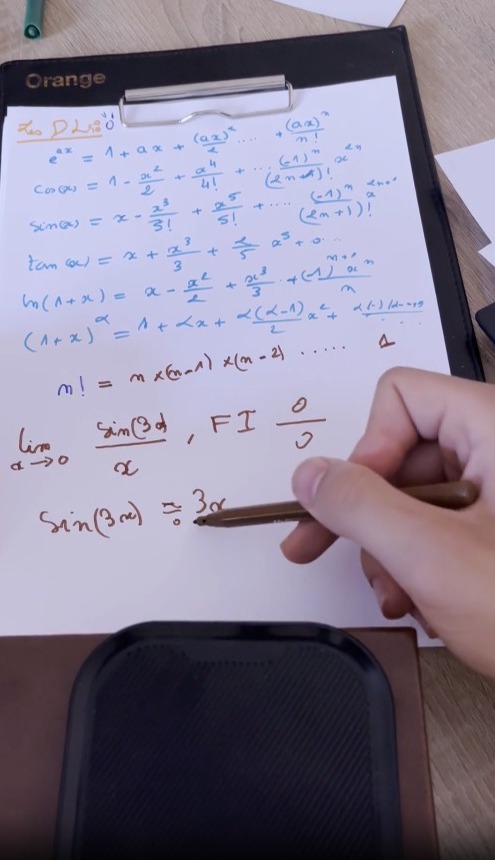 Orange
Les DL : 0
e^{ax} = 1 + ax + \frac{(ax)^2}{2} .... + \frac{(ax)^n}{n!}
cos(x) = 1 - \frac{x^2}{2} + \frac{x^4}{4!} + ... \frac{(-1)^n x^{2n}}{(2n)!}
sin(x) = x - \frac{x^3}{3!} + \frac{x^5}{5!} + .... \frac{(-1)^n x^{2n+1}}{(2n+1)!}
tan(x) = x + \frac{x^3}{3} + \frac{2}{5} x^5 + ...
ln(1+x) = x - \frac{x^2}{2} + \frac{x^3}{3} .. + \frac{(-1)^{n+1} x^n}{n}
(1+x)^α = 1 + αx + \frac{α(α-1)}{2} x^2 +
n! = n × (n-1) × (n-2) ..... 1
lim_{x→0} \frac{sin(3x)}{x} , FI \frac{0}{0}
sin(3x) ≈_0 3x